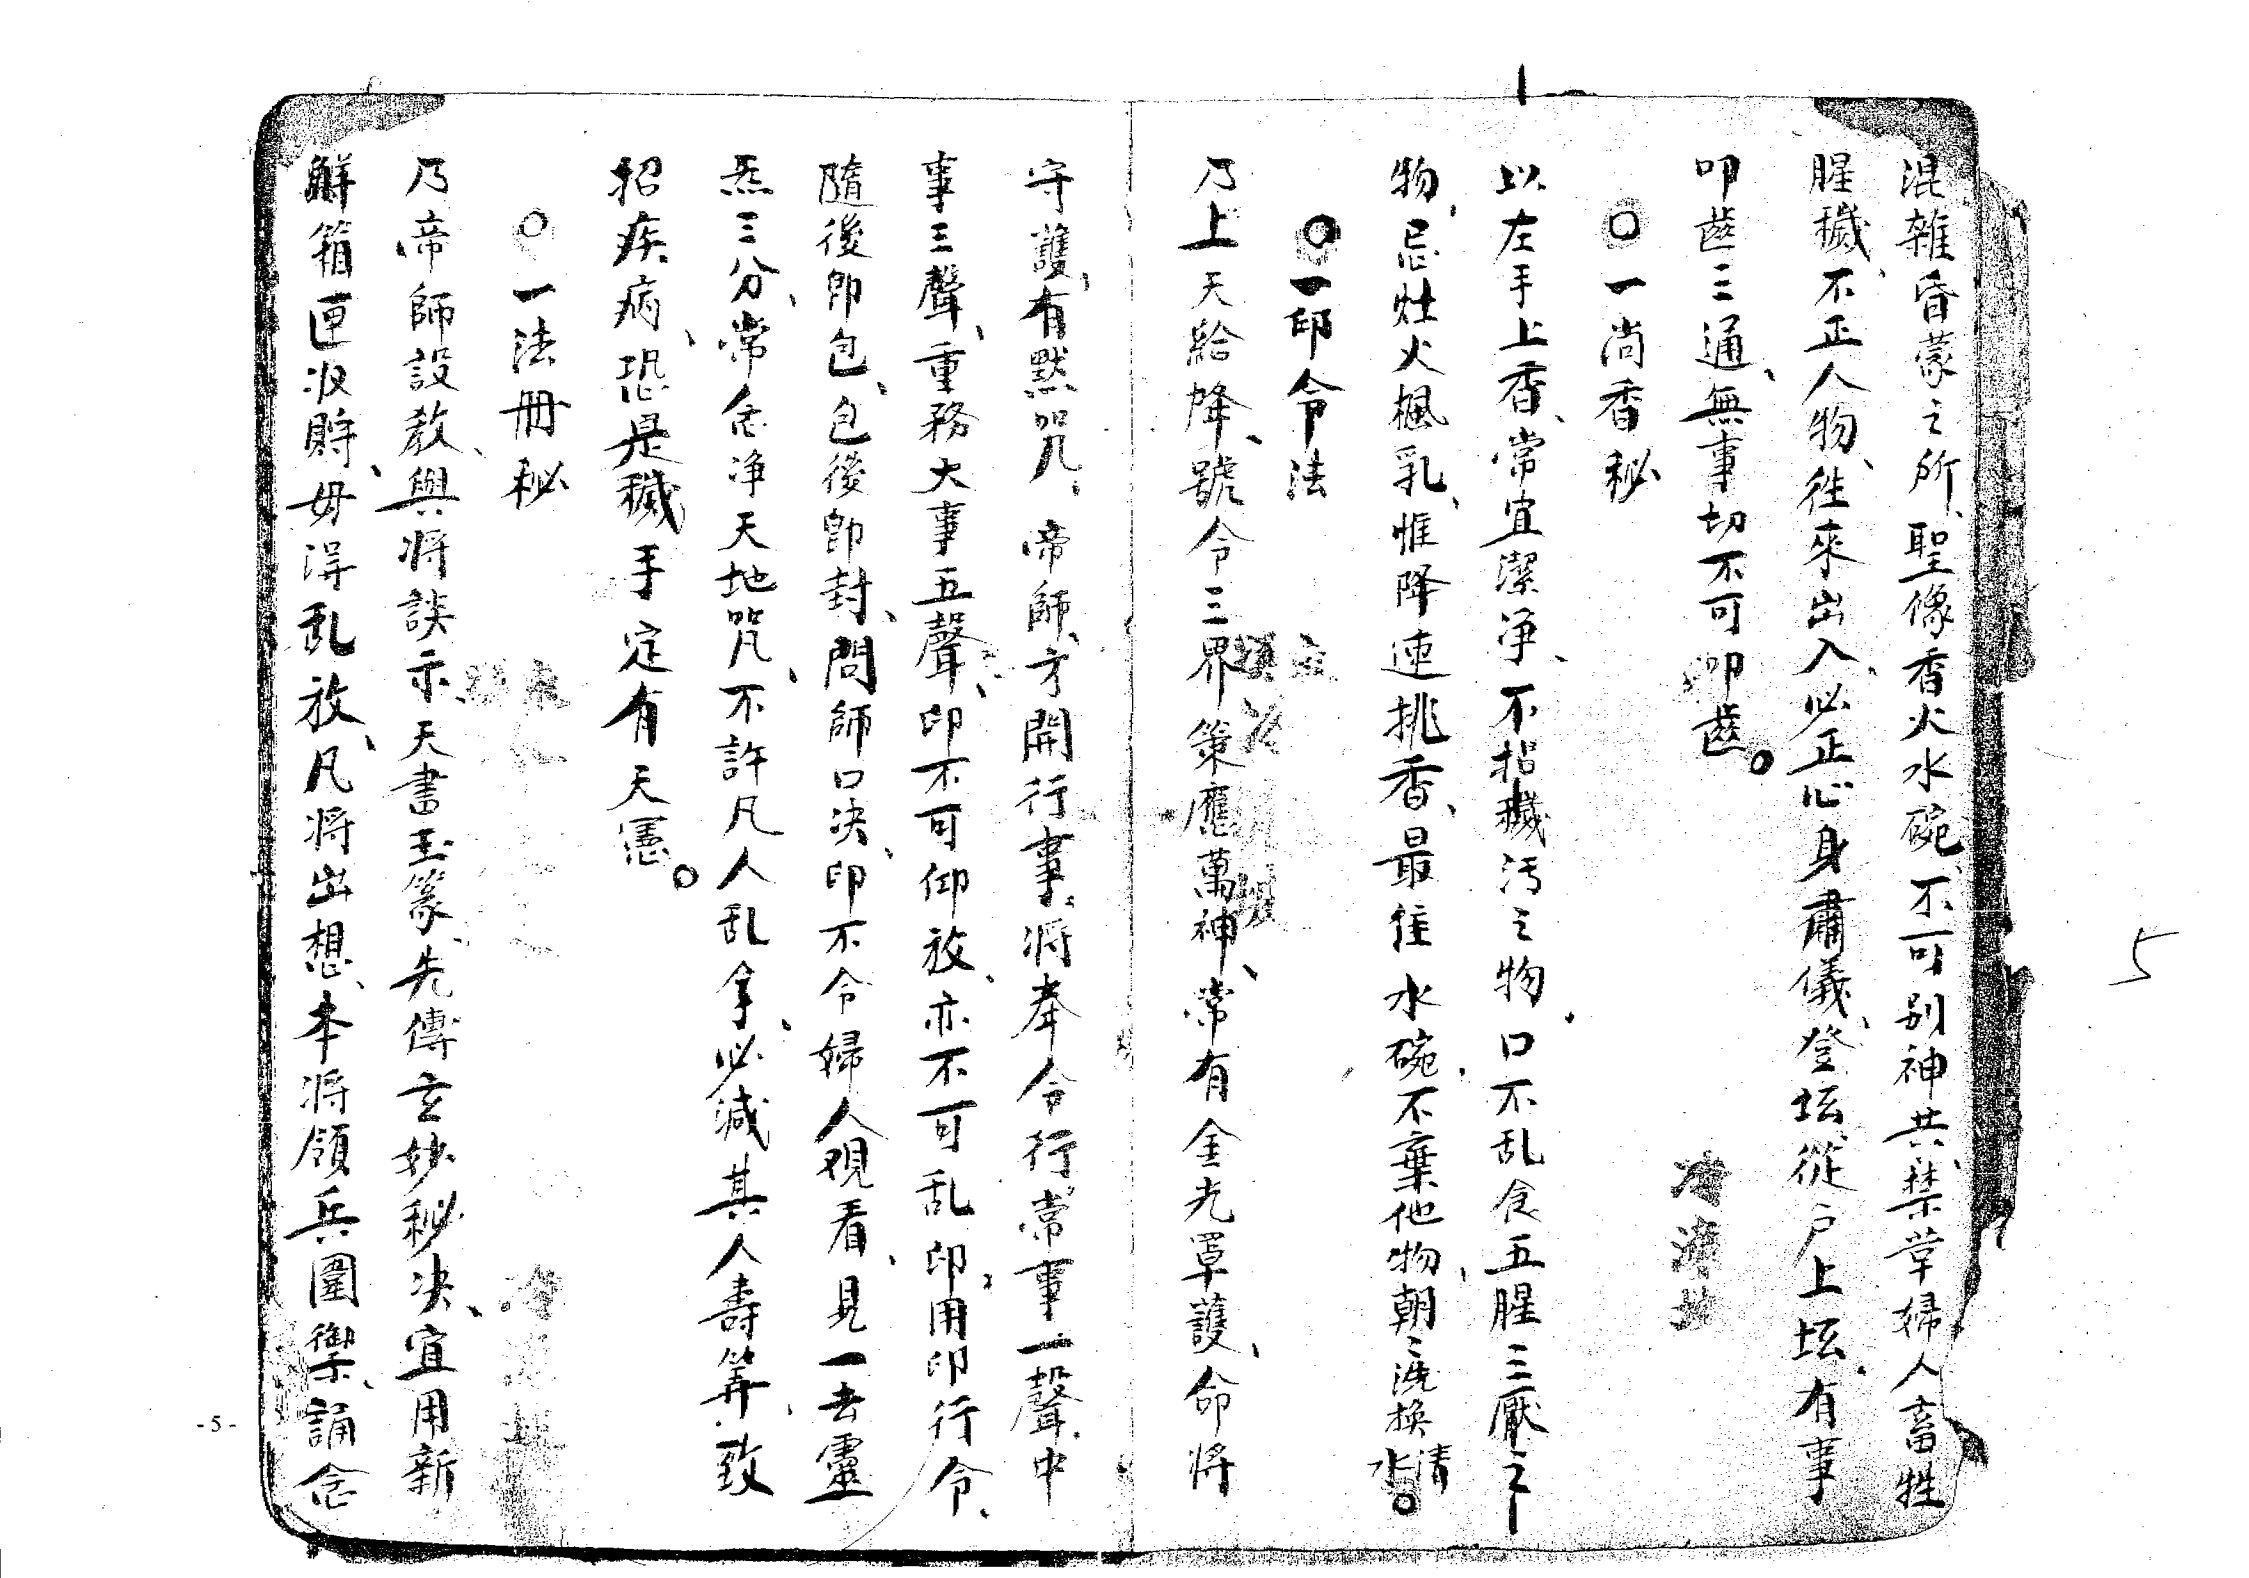 混雜昏蒙之所、聖像香火水碗、不可别神共、禁葷婦人畜牲
腥穢、不正人物、徃來出入、必正心身肅儀、登坛、從户上坛、有事
叩齒三通、無事切不可叩齒。
○一尚香秘
以左手上香、常宜潔净、不招穢污之物、口不乱食五腥三厭之
物、忌灶火楓乳、惟降速挑香、最徃水碗、不棄他物、朝〻洗換清水。
○一印令法
乃上天給降、號令三界、策應萬神、常有金光罩護、命将
守護、有黙咒、帝師、方開行事、将奉令行、常事一聲、中
事三聲、重務大事五聲、印不可仰放、亦不可乱印、用印行令、
隨後即包、包後即封、問師口决、印不令婦人观看、見一去靈
炁三分、常念净天地咒、不許凡人乱拿、必減其人壽筭、致
招疾病、恐是穢手定有天憲。
○一法冊秘
乃帝師設教、與将談示、天書玉篆、先傳玄妙秘决、宜用新
鮮箱匣收貯、毋淂乱放、凡将出想、本将領兵圍禦、誦念
5
-5-